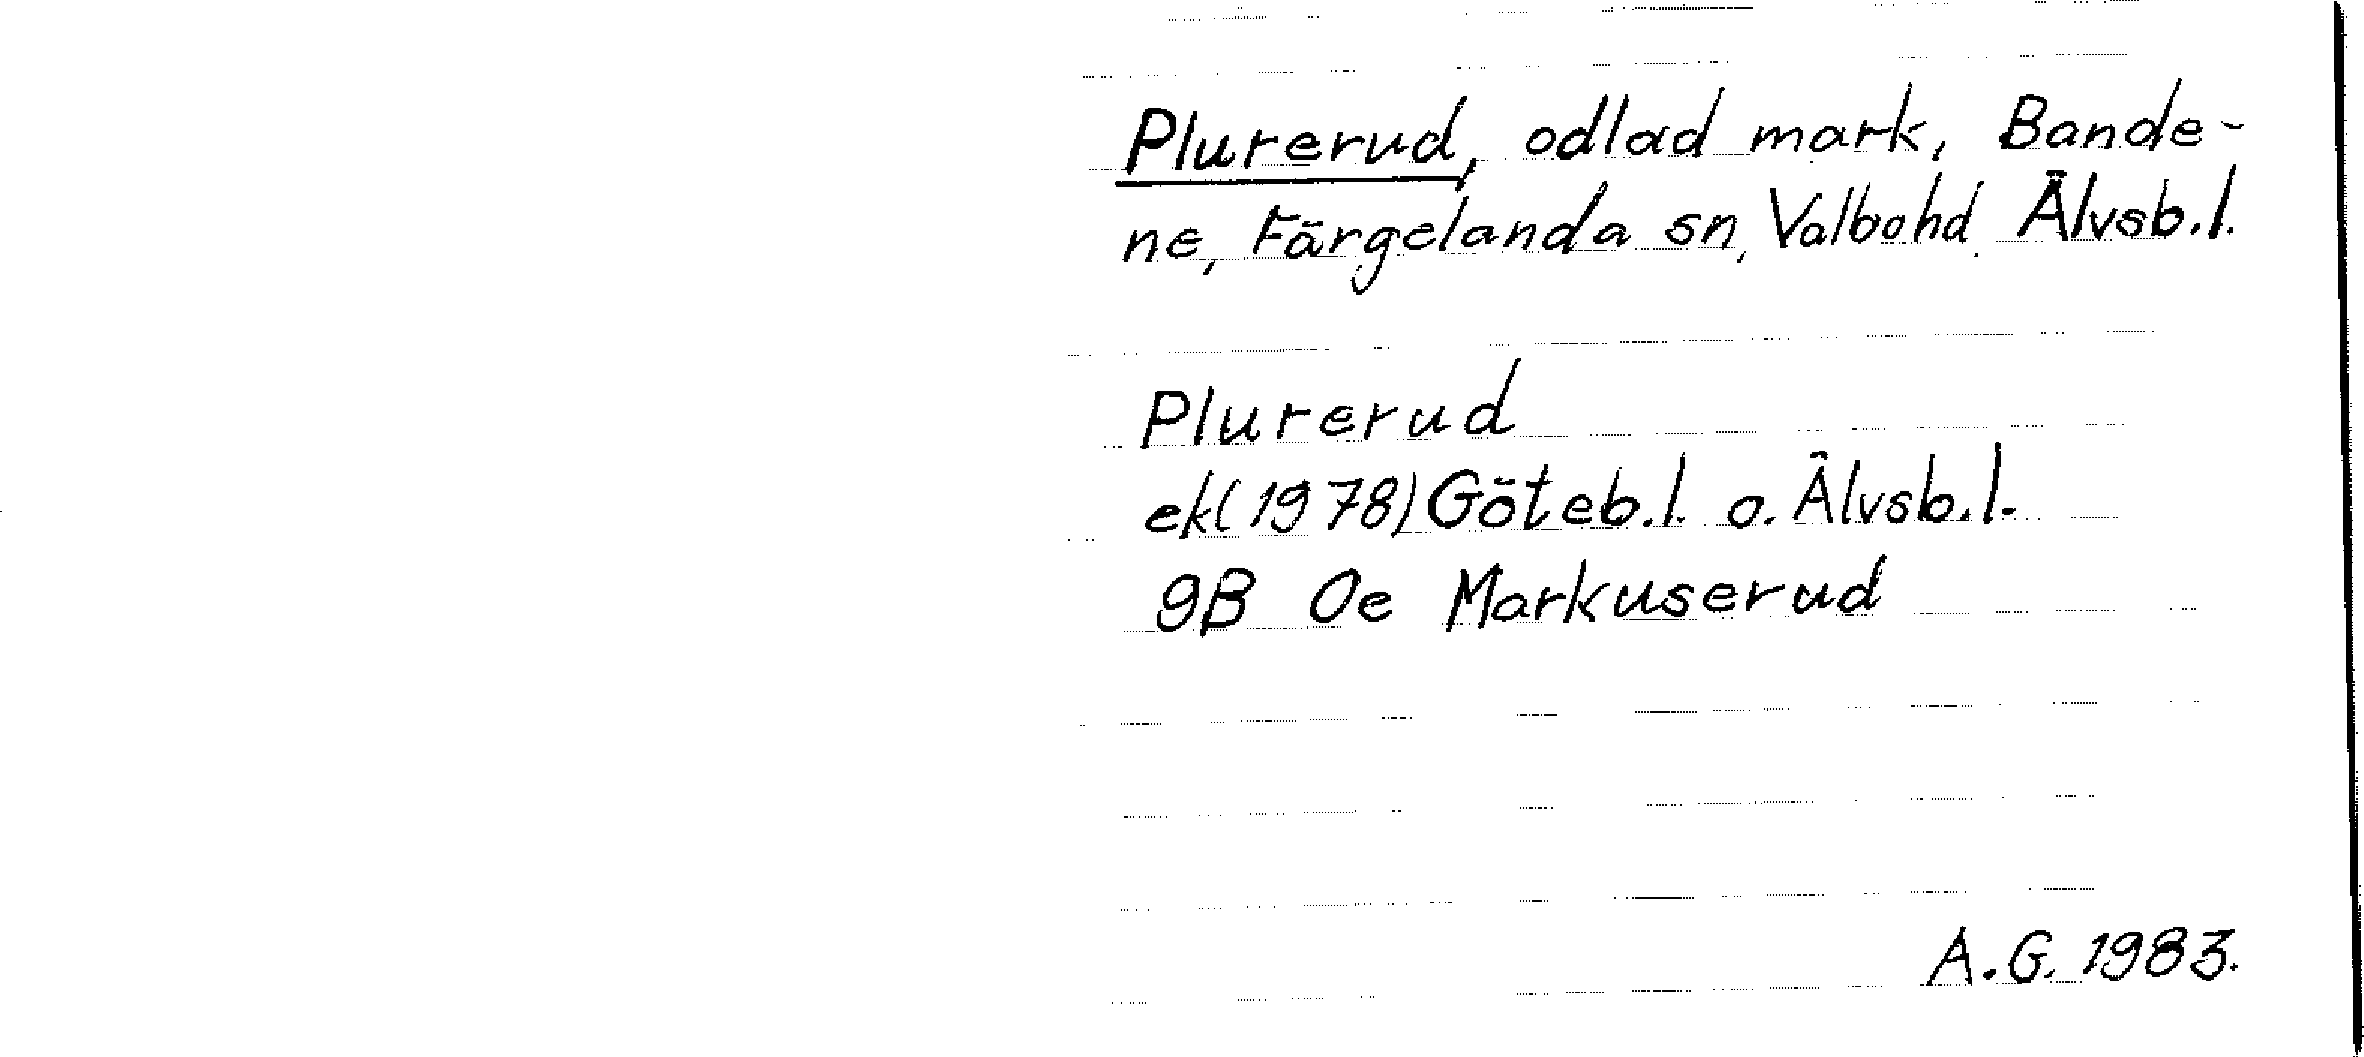 Plurerud, odlad mark, Bande-
ne, Färgelanda sn, Valbohd, Älvsb.l.
Plurerud
ek(1978) Göteb.l. o. Älvsb.l.
9B 0e Markuserud
A.G. 1983.